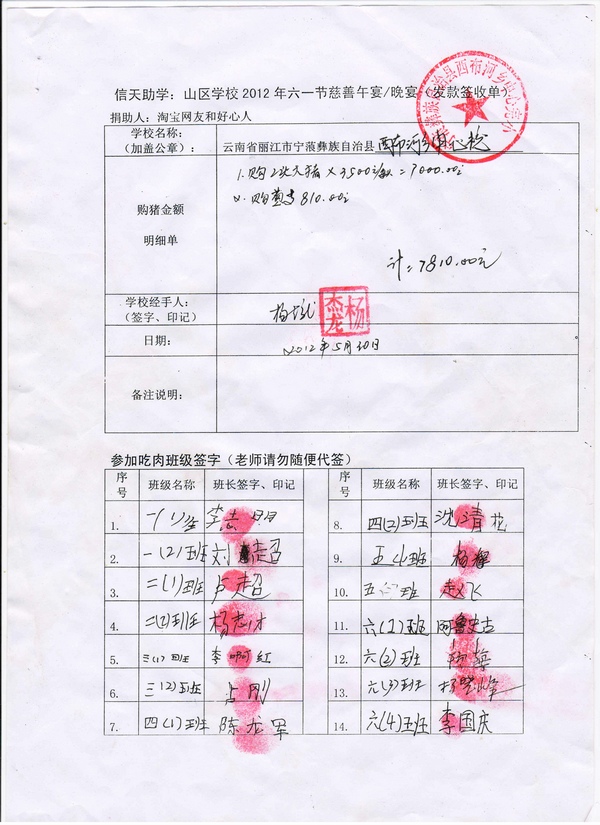 信天助学：山区学校2012年六一节慈善午宴/晚宴（发款签收单）
捐助人：淘宝网友和好心人
学校名称：
（加盖公章）：
云南省丽江市宁蒗彝族自治县西布河乡中心校
购猪金额
明细单
1.购2北大猪×3500元/ =7000.00元
2.购 810.00元
计：7810.00元
学校经手人：
（签字、印记）
杨杰龙
杨杰龙
日期：
2012年5月30日
备注说明：
参加吃肉班级签字（老师请勿随便代签）
序号 班级名称 班长签字、印记 序号 班级名称 班长签字、印记
1. 一(1)班 8. 四(2)班 沈清花
2. 一(2)班 刘 超 9. 五(1)班 杨
3. 二(1)班 卢超 10. 五 班 赵飞
4. 二(2)班 杨志才 11. 六(1)班 阿鲁史古
5. 三(1)班 李 红 12. 六(2)班
6. 三(2)班 刚 13. 六(3)班 杨晓峰
7. 四(1)班 陈龙军 14. 六(4)班 李国庆